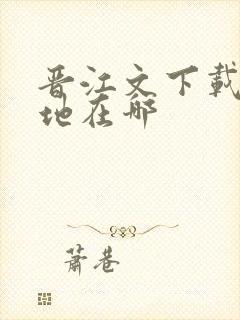 晋江文下载
地在哪
萧巷